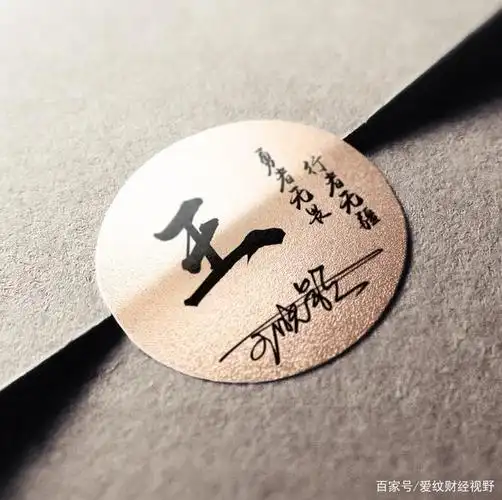 王
行者无疆
勇者无畏
百家号/爱纹财经视野